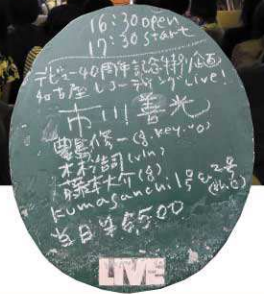 16:30 open
17:30 start
デビュー40周年記念特別企画
名古屋レコーディングLive!
市川善光
修一(g.key.vo)
(vln)
藤本大介(g)
kumasanchi 1号&2号(cho)
当日¥6500
LIVE